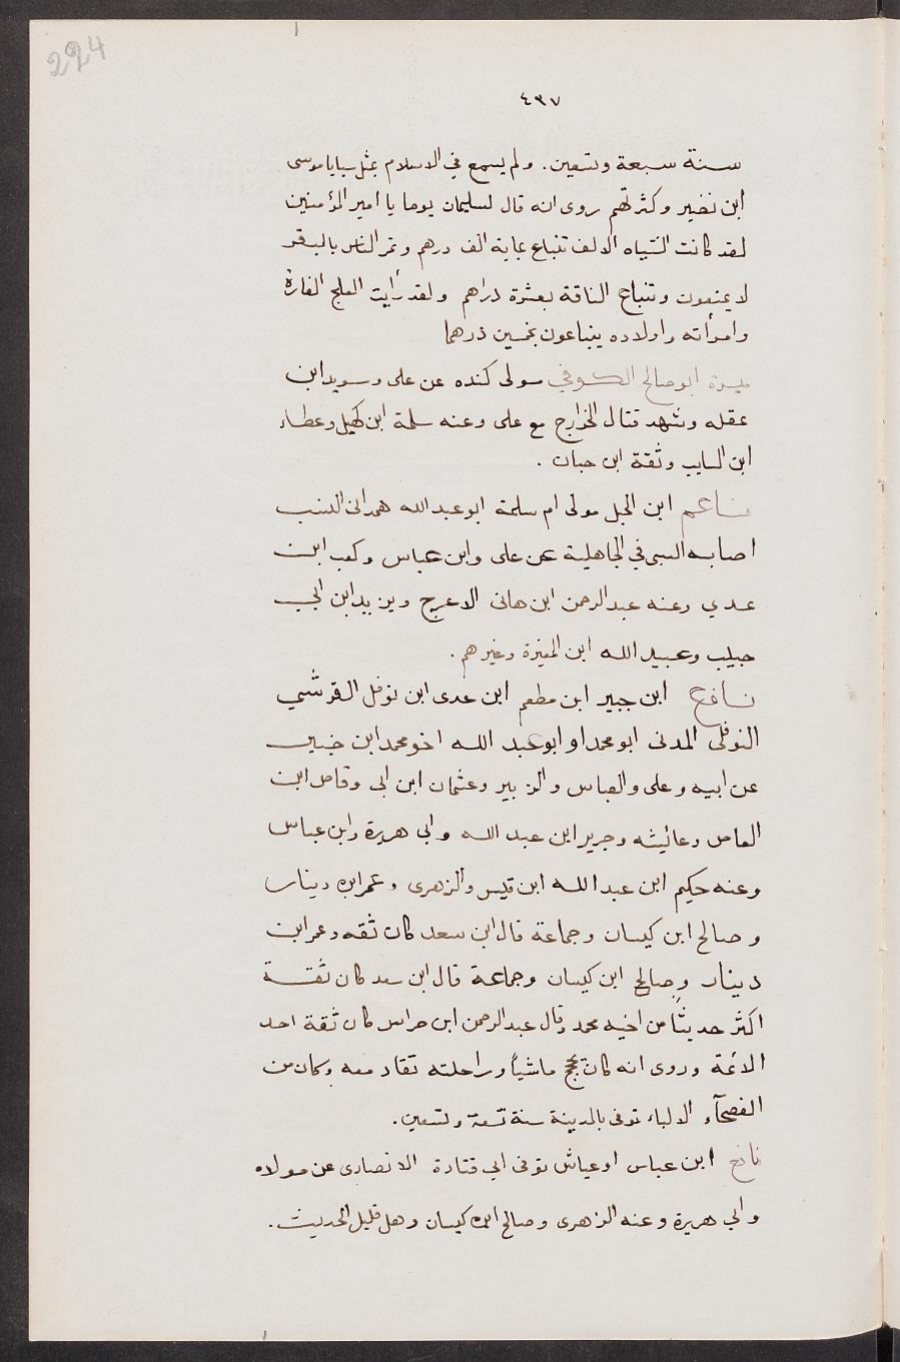 224
٤٣٧
سنة سبعة وتسعين. ولم يسمع في الاسلام بمثل سبايا موسى
ابن نضير وكثرتهم روى انه قال لسليمان يوما يا امير المؤمنين
لقد كانت الشياه الالف تنباع بماية الف درهم وتمر الناس بالبقر
لا يمنعون وتنباع الناقة بعشرة دراهم ولقد رأيت العلج الفارة
وامرأته واولاده ينباعون بخمسين درهما
ميسرة ابو صالح الكوفي مولى كنده عن على وسويد ابن
عقله وشهد قتال الخوارج مع على وعنه سلمة ابن كهيل وعطاء
ابن السايب وثقة ابن حبان .
ناعم ابن الجبل مولى ام سلمة ابو عبد الله همدانى النسب
اصابه السبى في الجاهلية عن على وابن عباس وكعب ابن
عدي وعنه عبد الرحمن ابن هانى الاعرج ويزيد ابن ابى
حبيب وعبيد الله ابن المغيرة وغيرهم .
نافع ابن جبير ابن مطعم ابن عدى ابن نوفل القرشي
النوفلى المدنى ابو محمد او ابو عبد الله اخو محمد ابن جبير
عن ابيه وعلى والعباس والزبير وعثمان ابن ابى وقاص ابن
العاص وعائيشه وجرير ابن عبد الله وابى هريرة وابن عباس
وعنه حكيم ابن عبد الله ابن قيس والزهرى وعمر ابن دينار
وصالح ابن كيسان وجماعة قال ابن سعد كان ثقه وعمر ابن
دينار وصالح ابن كيسان وجماعة قال ابن سعد كان ثقة
اكثر حديثا من اخيه محمد وقال عبد الرحمن ابن حراس كان ثقة احد
الائمة وروى انه كان يحج ماشيا وراحلته تقاد معه وكان من
الفصحآء الالباء توفى بالمدينة سنة تسعة وتسعين .
نافع ابن عباس او عياش توفى ابى قتادة الانصارى عن مولاه
وابى هريرة وعنه الزهرى وصالح ابن كيسان وهل قليل الحديث .